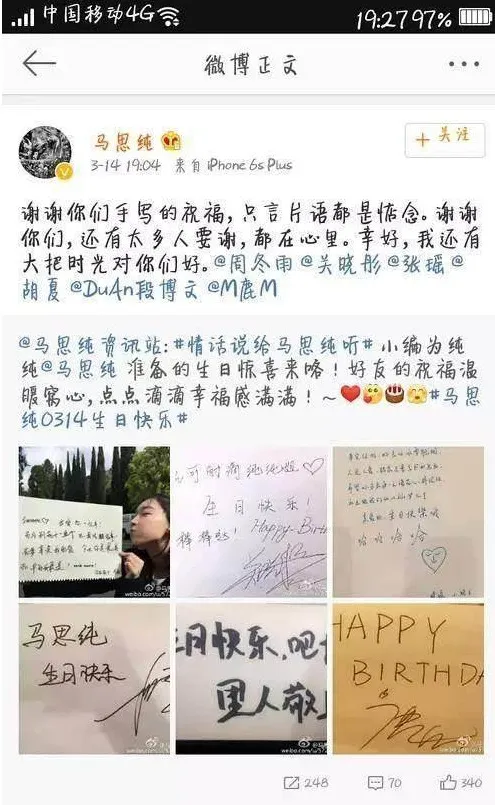 中国移动4G 19:27 97%
微博正文
马思纯
+关注
3-14 19:04 来自 iPhone 6s Plus
谢谢你们手写的祝福，只言片语都是惦念。谢谢
你们，还有太多人要谢，都在心里。幸好，我还有
大把时光对你们好。@周冬雨 @关晓彤 @张瑶 @
胡夏 @DuAn段博文 @M鹿M
@马思纯资讯站:#情话说给马思纯听# 小编为纯
纯@马思纯 准备的生日惊喜来咯！好友的祝福温
暖窝心，点点滴滴幸福感满满！~#马思
纯0314生日快乐#
生日快乐！
棒棒哒！Happy-Birth
哈哈哈哈
weibo.com/u/572
马思纯
生日快乐
生日快乐，吧
里人敬上
HAPPY
BIRTHDA
248 70 340